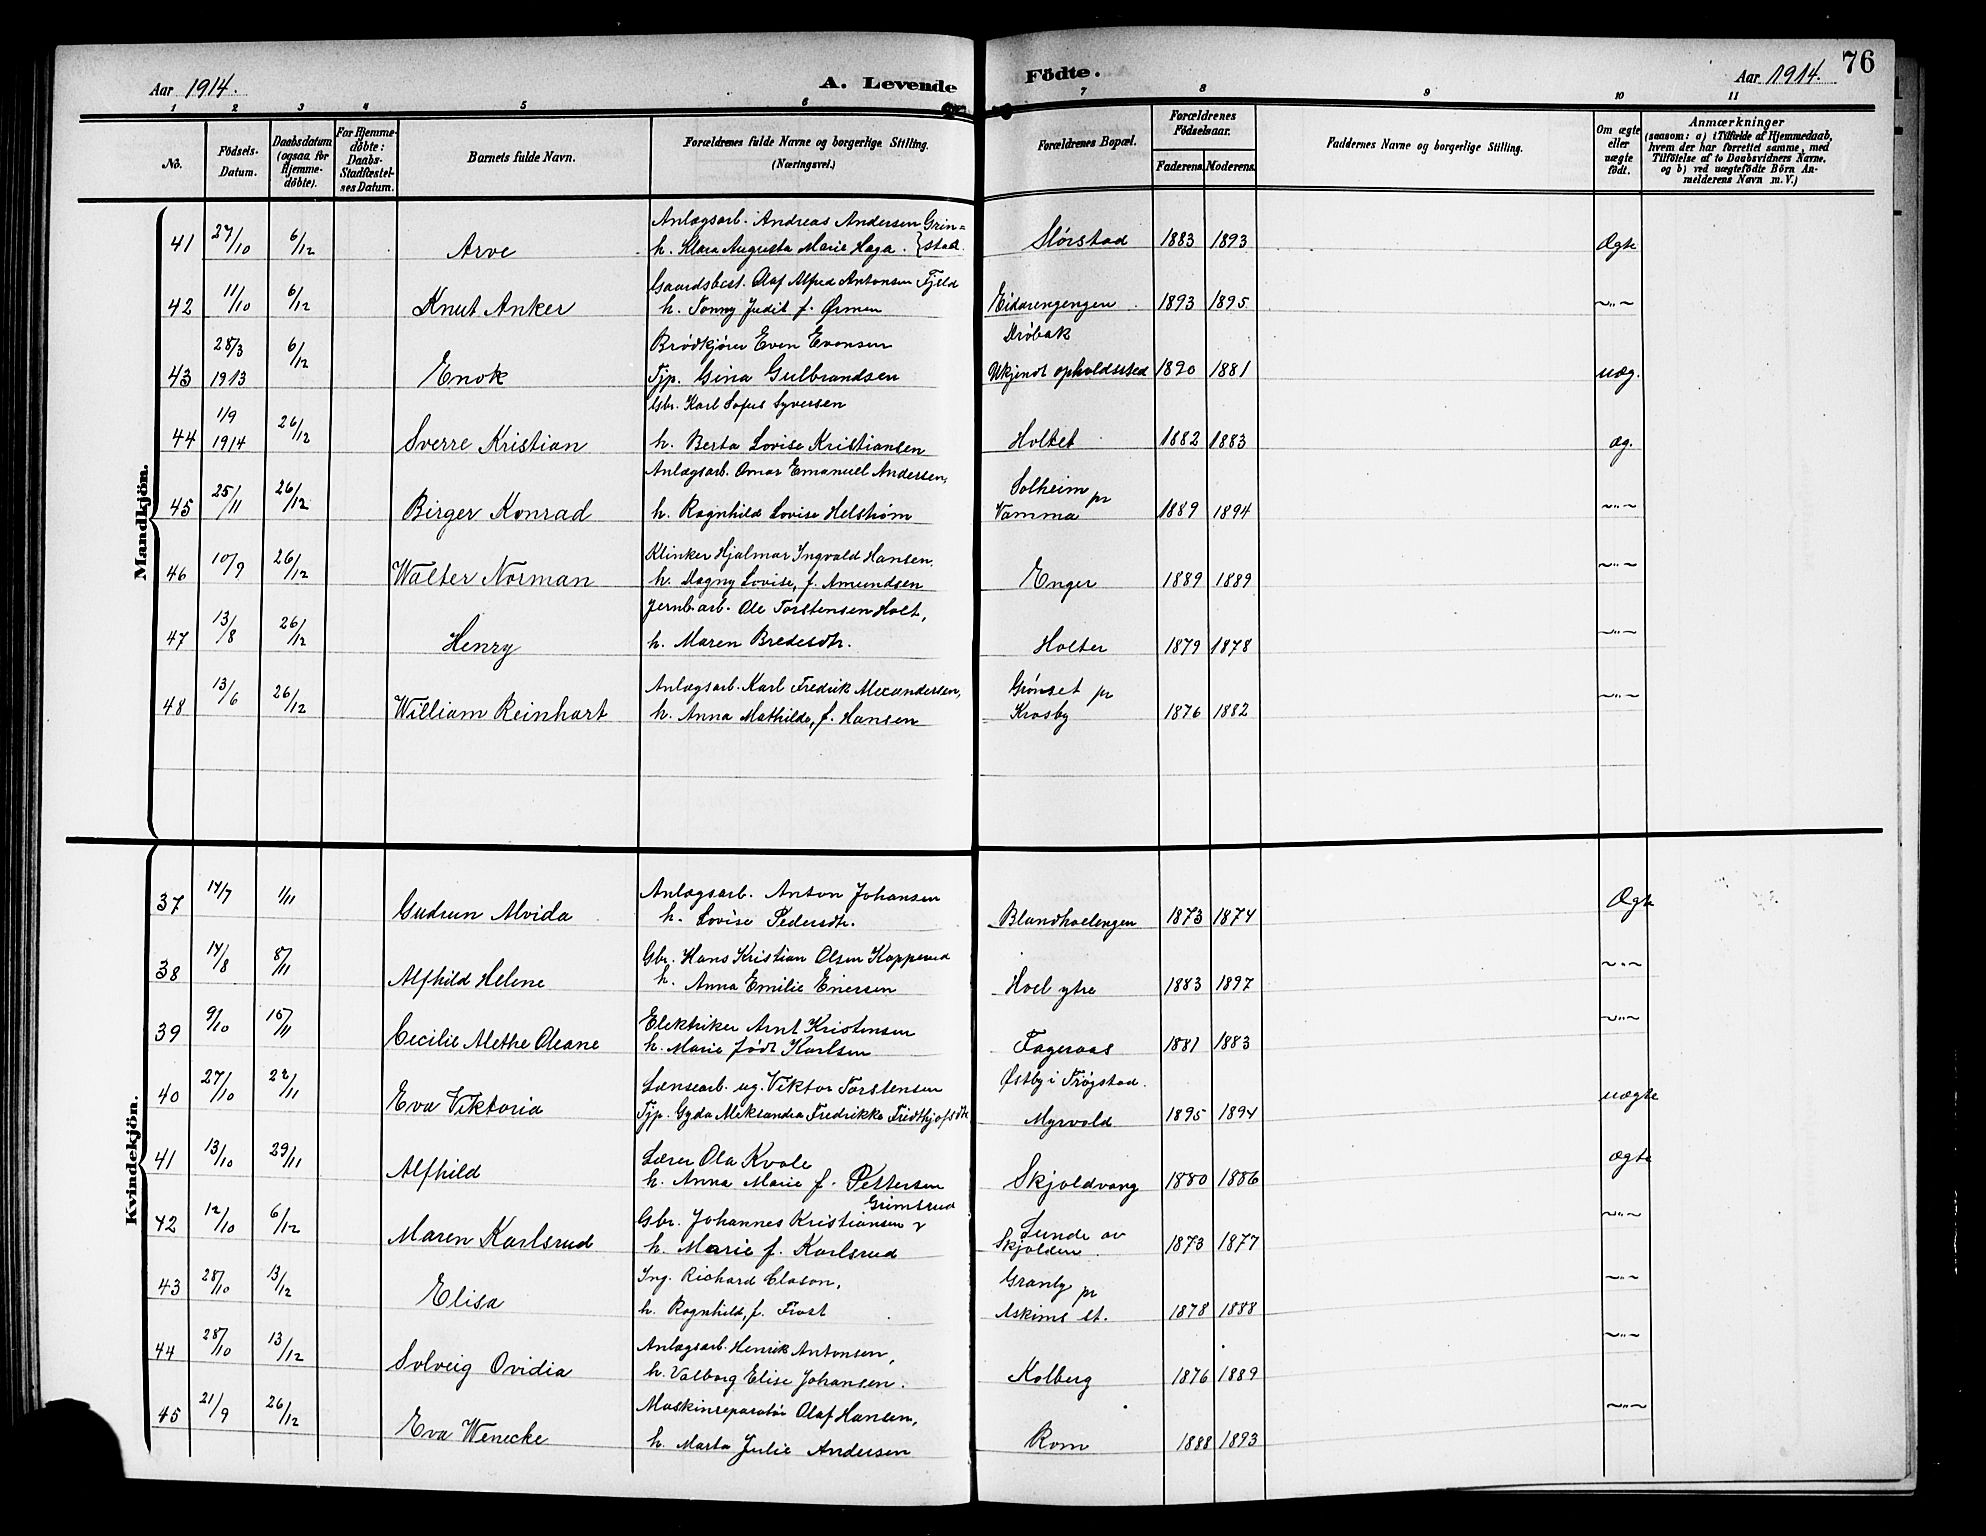 76
Aar 1914.
A. Levende Födte.
Aar 1914.
1 2 3 4 5 6 7 8 9 10 11
No.
Födsels-Datum.
Daabsdatum (ogsaa for Hjemmedöbte).
For Hjemmedöbte: Daabs-Stadfæstelses Datum.
Barnets fulde Navn.
Forældrenes fulde Navne og borgerlige Stilling. (Næringsvei.)
Forældrenes Bopæl.
Forældrenes Födselsaar.
Faderens. Moderens.
Faddernes Navne og borgerlige Stilling.
Om ægte eller uægte födt.
Anmærkninger
(saasom: a) i Tilfælde af Hjemmedaab, hvem der har forrettet samme, med Tilföielse af to Daabsvidners Navne, og b) ved uægtefödte Börn Anmelderens Navn m. V.)
Mandkjön.
41 27/10 6/12 Arve Anlægsarb. Andreas Andersen Grinstad h. Klara Augusta Marie Haga. Slørstad 1883 1893 Ægte
42 11/10 6/12 Knut Anker Gaardsbest. Olaf Alfred Antonsen Fjeld h. Tonny Judit f. Ørmen Eidarengengen 1893 1895 ~"~
43 28/3 1913 6/12 Enok Brødkjører Even Evensen Tjp. Gina Gulbrandsen Drøbak Ukjendt opholdssted 1890 1881 uæg.
44 1/9 1914 26/12 Sverre Kristian Gbr. Karl Sofus Syversen h. Berta Lovise Kristiansen Holtet 1882 1883 æg.
45 25/11 26/12 Birger Konrad Anlægsarb. Omar Emanuel Andersen, h. Ragnhild Lovise Helstrøm Solheim pr Vamma 1889 1894 ~"~
46 10/9 26/12 Walter Norman Klinker Hjalmar Ingvald Hansen. h. Dagny Lovise, f. Amundsen Enger 1889 1889 ~"~
47 13/8 26/12 Henry Jernb.arb. Ole Torstensen Holt, h. Maren Bredesdtr. Holter 1879 1878 ~"~
48 13/6 26/12 William Reinhart Anlægsarb. Karl Fredrik Alexandersen, h. Anna Mathilde, f. Hansen Grønset pr Krosby 1876 1882 ~"~
Kvindekjön.
37 14/7 1/11 Gudrun Alvida Anlægsarb. Anton Johansen h. Lovise Pedersdtr. Blandhoelengen 1873 1874 Ægte
38 14/8 8/11 Alfhild Helene Gbr. Hans Kristian Olsen Kopperud h. Anna Emilie Enersen Hoel ytre 1883 1897 ~"~
39 9/10 15/11 Cecilie Alethe Oleane Elektriker Arnt Kristensen h. Marie født Karlsen Fageraas 1881 1883 ~"~
40 27/10 22/11 Eva Viktoria Lænsearb. ug. Viktor Torstensen Tjp. Gyda Aleksandra Fredrikke Fredthjofsdtr Østby i Trøgstad. Myrvold 1895 1894 uægte
41 13/10 29/11 Alfhild Lærer Ola Kvale h. Anna Marie f. Pettersen Skjoldvang 1880 1886 ægte
42 12/10 6/12 Maren Karlsrud Gbr. Johannes Kristiansen Grimsrud h. Marie f. Karlsrud Lunde av Skjolden 1873 1877 ~"~
43 28/10 13/12 Elisa Ing. Richard Clason, h. Ragnhild, f. Frost Granly pr Askims st. 1878 1888 ~"~
44 28/10 13/12 Solveig Ovidia Anlægsarb. Henrik Antonsen, h. Valborg Elise Johansen. Kolberg 1876 1889 ~"~
45 21/9 26/12 Eva Wenecke Maskinreparatør Olaf Hansen, h. Marta Julie Andersen Rom 1888 1893 ~"~